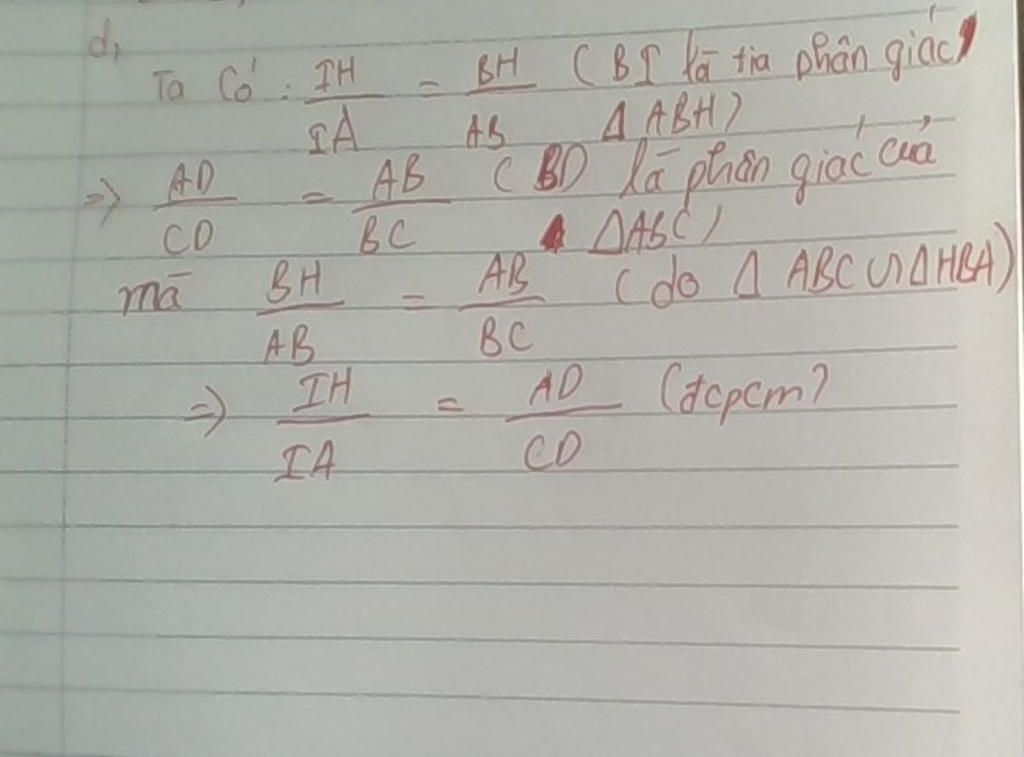 d,
Ta Có : IH/IA = BH/AB (BI là tia phân giác
Δ ABH)
=> AD/CD = AB/BC (BD là phân giác của
ΔABC)
mà BH/AB = AB/BC (do Δ ABC ∽ ΔHBA)
=> IH/IA = AD/CD (đcpcm)